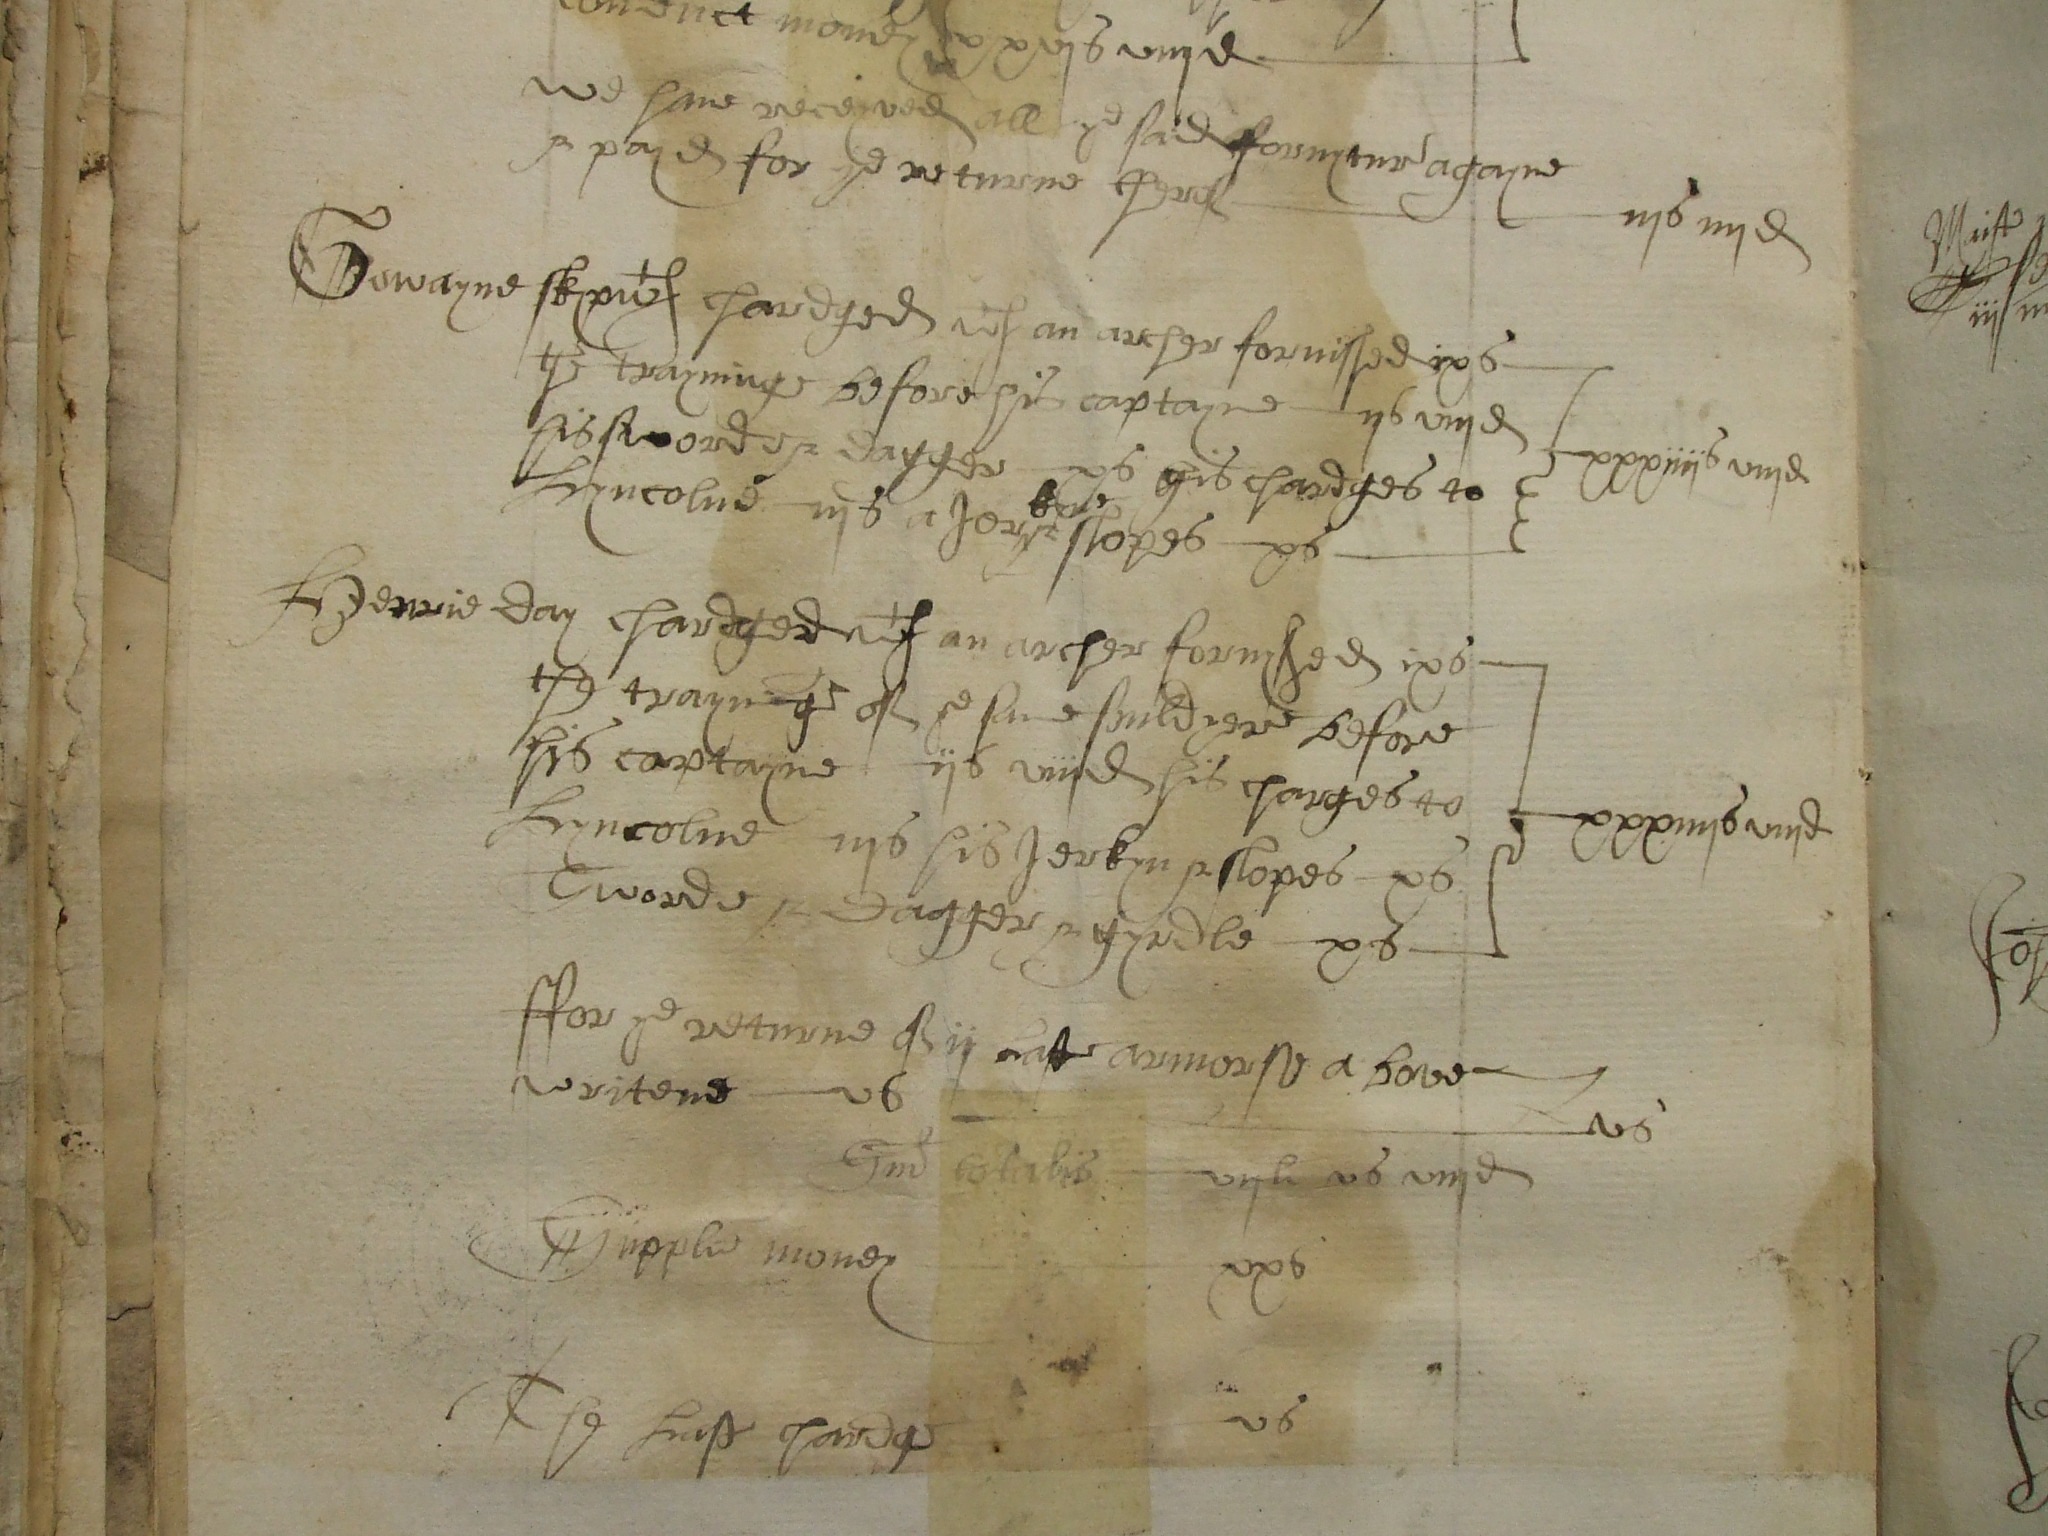 conduct money xxvis viijd
we have receyved all ye said fornytur agayne
& payd for ye returne therof iijs iiijd
Gowayne skypwth chardged wth an archer fornisshed ixs
the trayninge before his captayne iis viijd
his sworde & dagger xs his chardges to
Lyncolne iijs a Jerkyne & slopes xs
xxxiiiis viijd
Henrie Day chardged wth an archer fornyshed ixs
the trayninge of ye same souldyere before
his captayne ijs viijd his charges to
Lyncolne iijs his Jerkyn & slopes xs
Sworde & Dagger & gyrdle xs
xxxiiiis viijd
ffor ye returne of ij armorse a bove
writene vs
vs
Sm totalis viijli vs viijd
Supplie money xxs
The last chardge vs